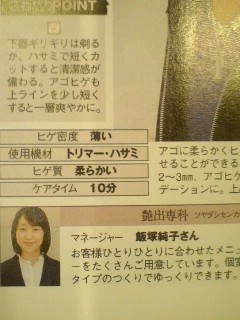 POINT
下唇ギリギリは剃る
か、ハサミで短くカ
ットすると清潔感が
備わる。アゴヒゲも
上ラインを少し短く
すると一層爽やかに。
ヒゲ密度 薄い
使用機材 トリマー・ハサミ
ヒゲ質 柔らかい
ケアタイム 10分
アゴに柔らかくヒ
せることができる
2〜3mm。アゴヒ
デーションに。上
艶出専科 ツヤダシセンカ
マネージャー 飯塚純子さん
お客様ひとりひとりに合わせたメニュ
ーをたくさんご用意しています。個室
タイプのつくりでゆっくりできます。